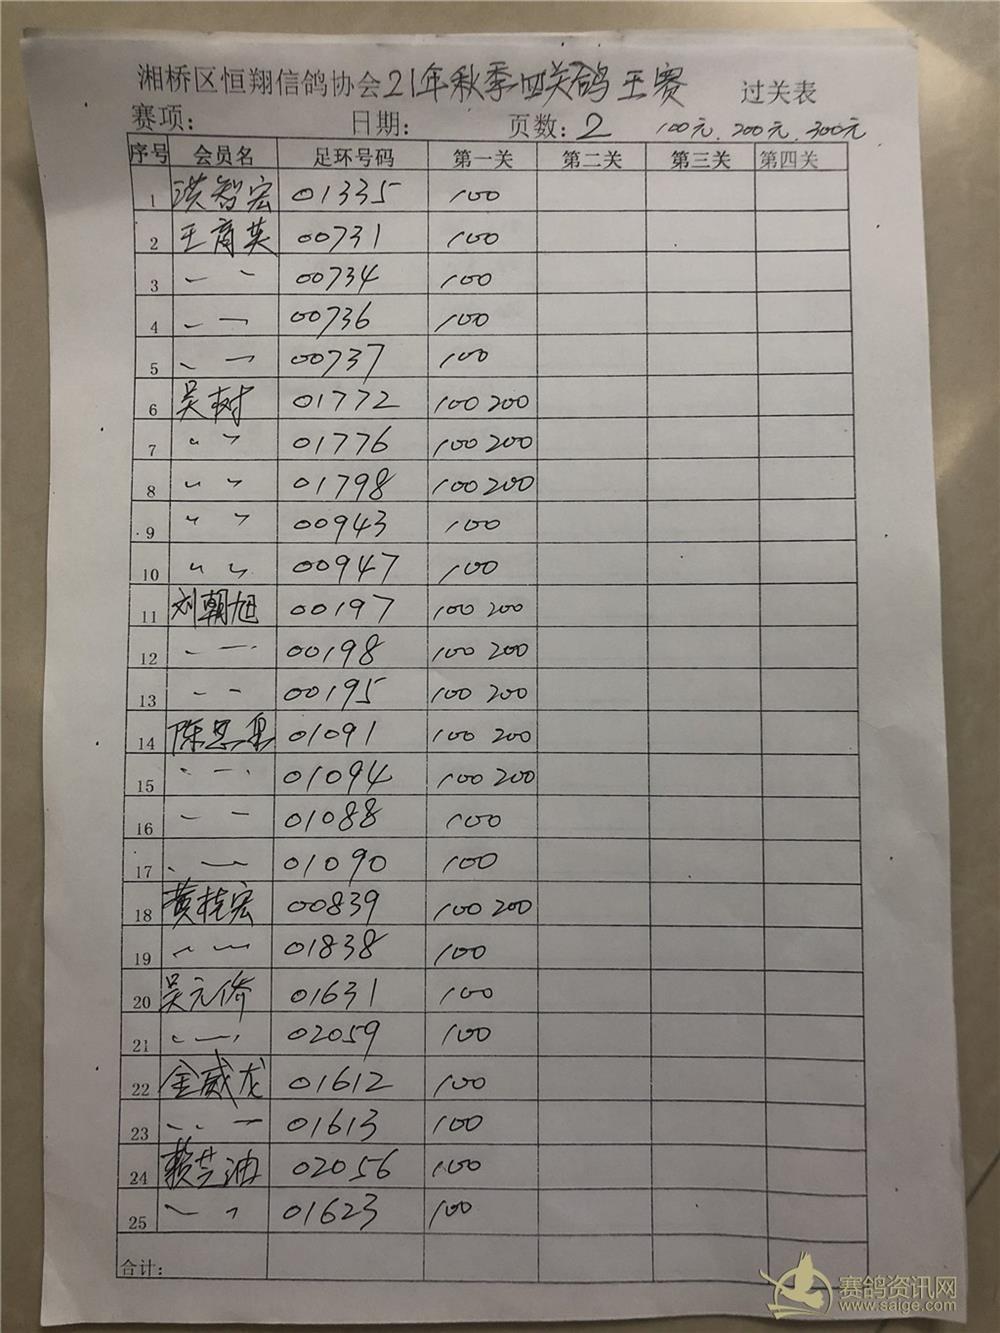 湘桥区恒翔信鸽协会21年秋季四关鸽王赛 过关表
赛项: 日期: 页数: 2 100元.200元.300元
序号 会员名 足环号码 第一关 第二关 第三关 第四关
1 洪智宏 01335 100
2 王育英 00731 100
3 〃 00734 100
4 〃 00736 100
5 〃 00737 100
6 吴树 01772 100 200
7 〃 01776 100 200
8 〃 01798 100 200
9 〃 00943 100
10 〃 00947 100
11 刘朝旭 00197 100 200
12 〃 00198 100 200
13 〃 00195 100 200
14 陈思 01091 100 200
15 〃 01094 100 200
16 〃 01088 100
17 〃 01090 100
18 黄桂宏 00839 100 200
19 〃 01838 100
20 吴元侨 01631 100
21 〃 02059 100
22 金威龙 01612 100
23 〃 01613 100
24 赖芝油 02056 100
25 〃 01623 100
合计:
赛鸽资讯网
www.saige.com